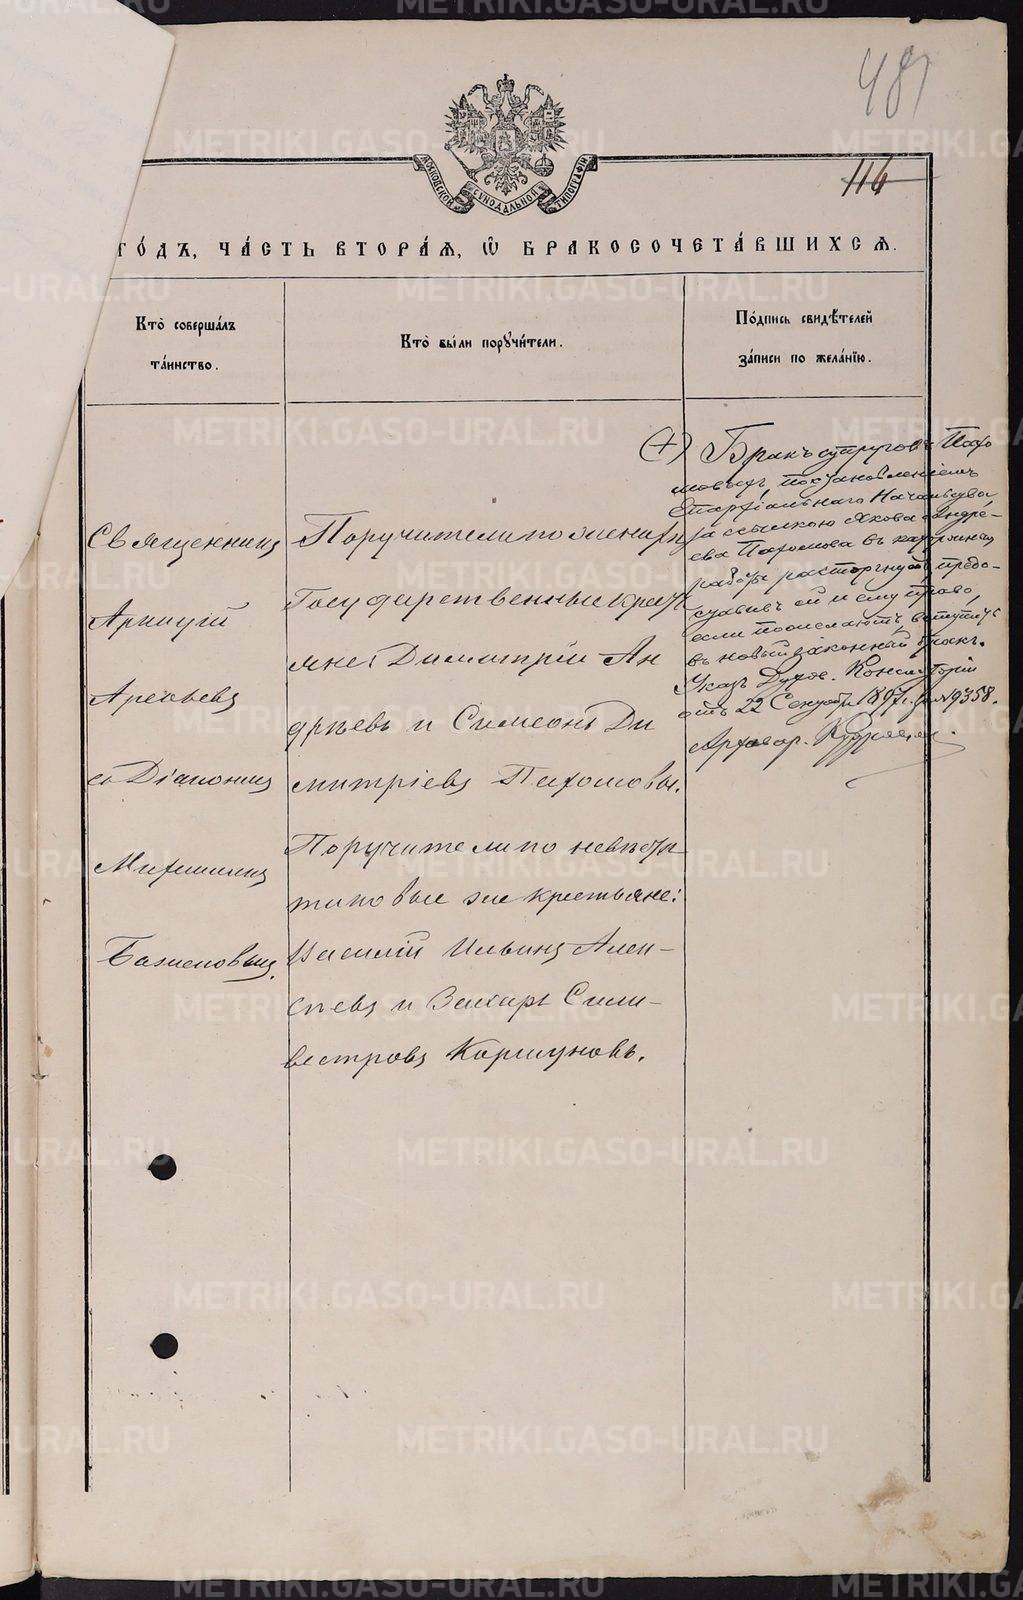 481
116
МОСКОВСКОЙ СѴНОДАЛЬНОЙ ТИПОГРАФІИ
ГО́ДЪ, ЧА́СТЬ ВТОРА́Я, Ѡ҆ БРАКОСОЧЕТА́ВШИХСЯ.
Кто̀ соверша́лъ
та́инство.
Кто̀ бы́ли порꙋчи́тели.
По́дпись свидѣ́телей
за́писи по жела́нїю.
Священникъ
Аркадій
Арсеньевъ
съ Діакономъ
Михаиломъ
Баженовымъ.
Поручители по женихѣ
Государственные кресть
яне: Димитрій Ан
дреевъ и Симеонъ Ди
митріевъ Пахомовы.
Поручители по невѣстѣ
таковые же крестьяне:
Василій Ильинъ Алек-
сѣевъ и Захаръ Силь-
вестровъ Коршуновъ.
(+) Бракъ супруговъ Пахо
мовыхъ постановленіемъ
Епархіальнаго Начальства
за ссылкою Якова Андре-
ева Пахомова въ каторжныя
работы расторгнутъ, предо-
ставивъ ей и ему право,
если пожелаютъ, вступить
въ новый законный бракъ.
Указъ Духов. Консисторіи
отъ 22 Сентября 1897 г. за № 9358.
Архивар.
METRIKI.GASO-URAL.RU